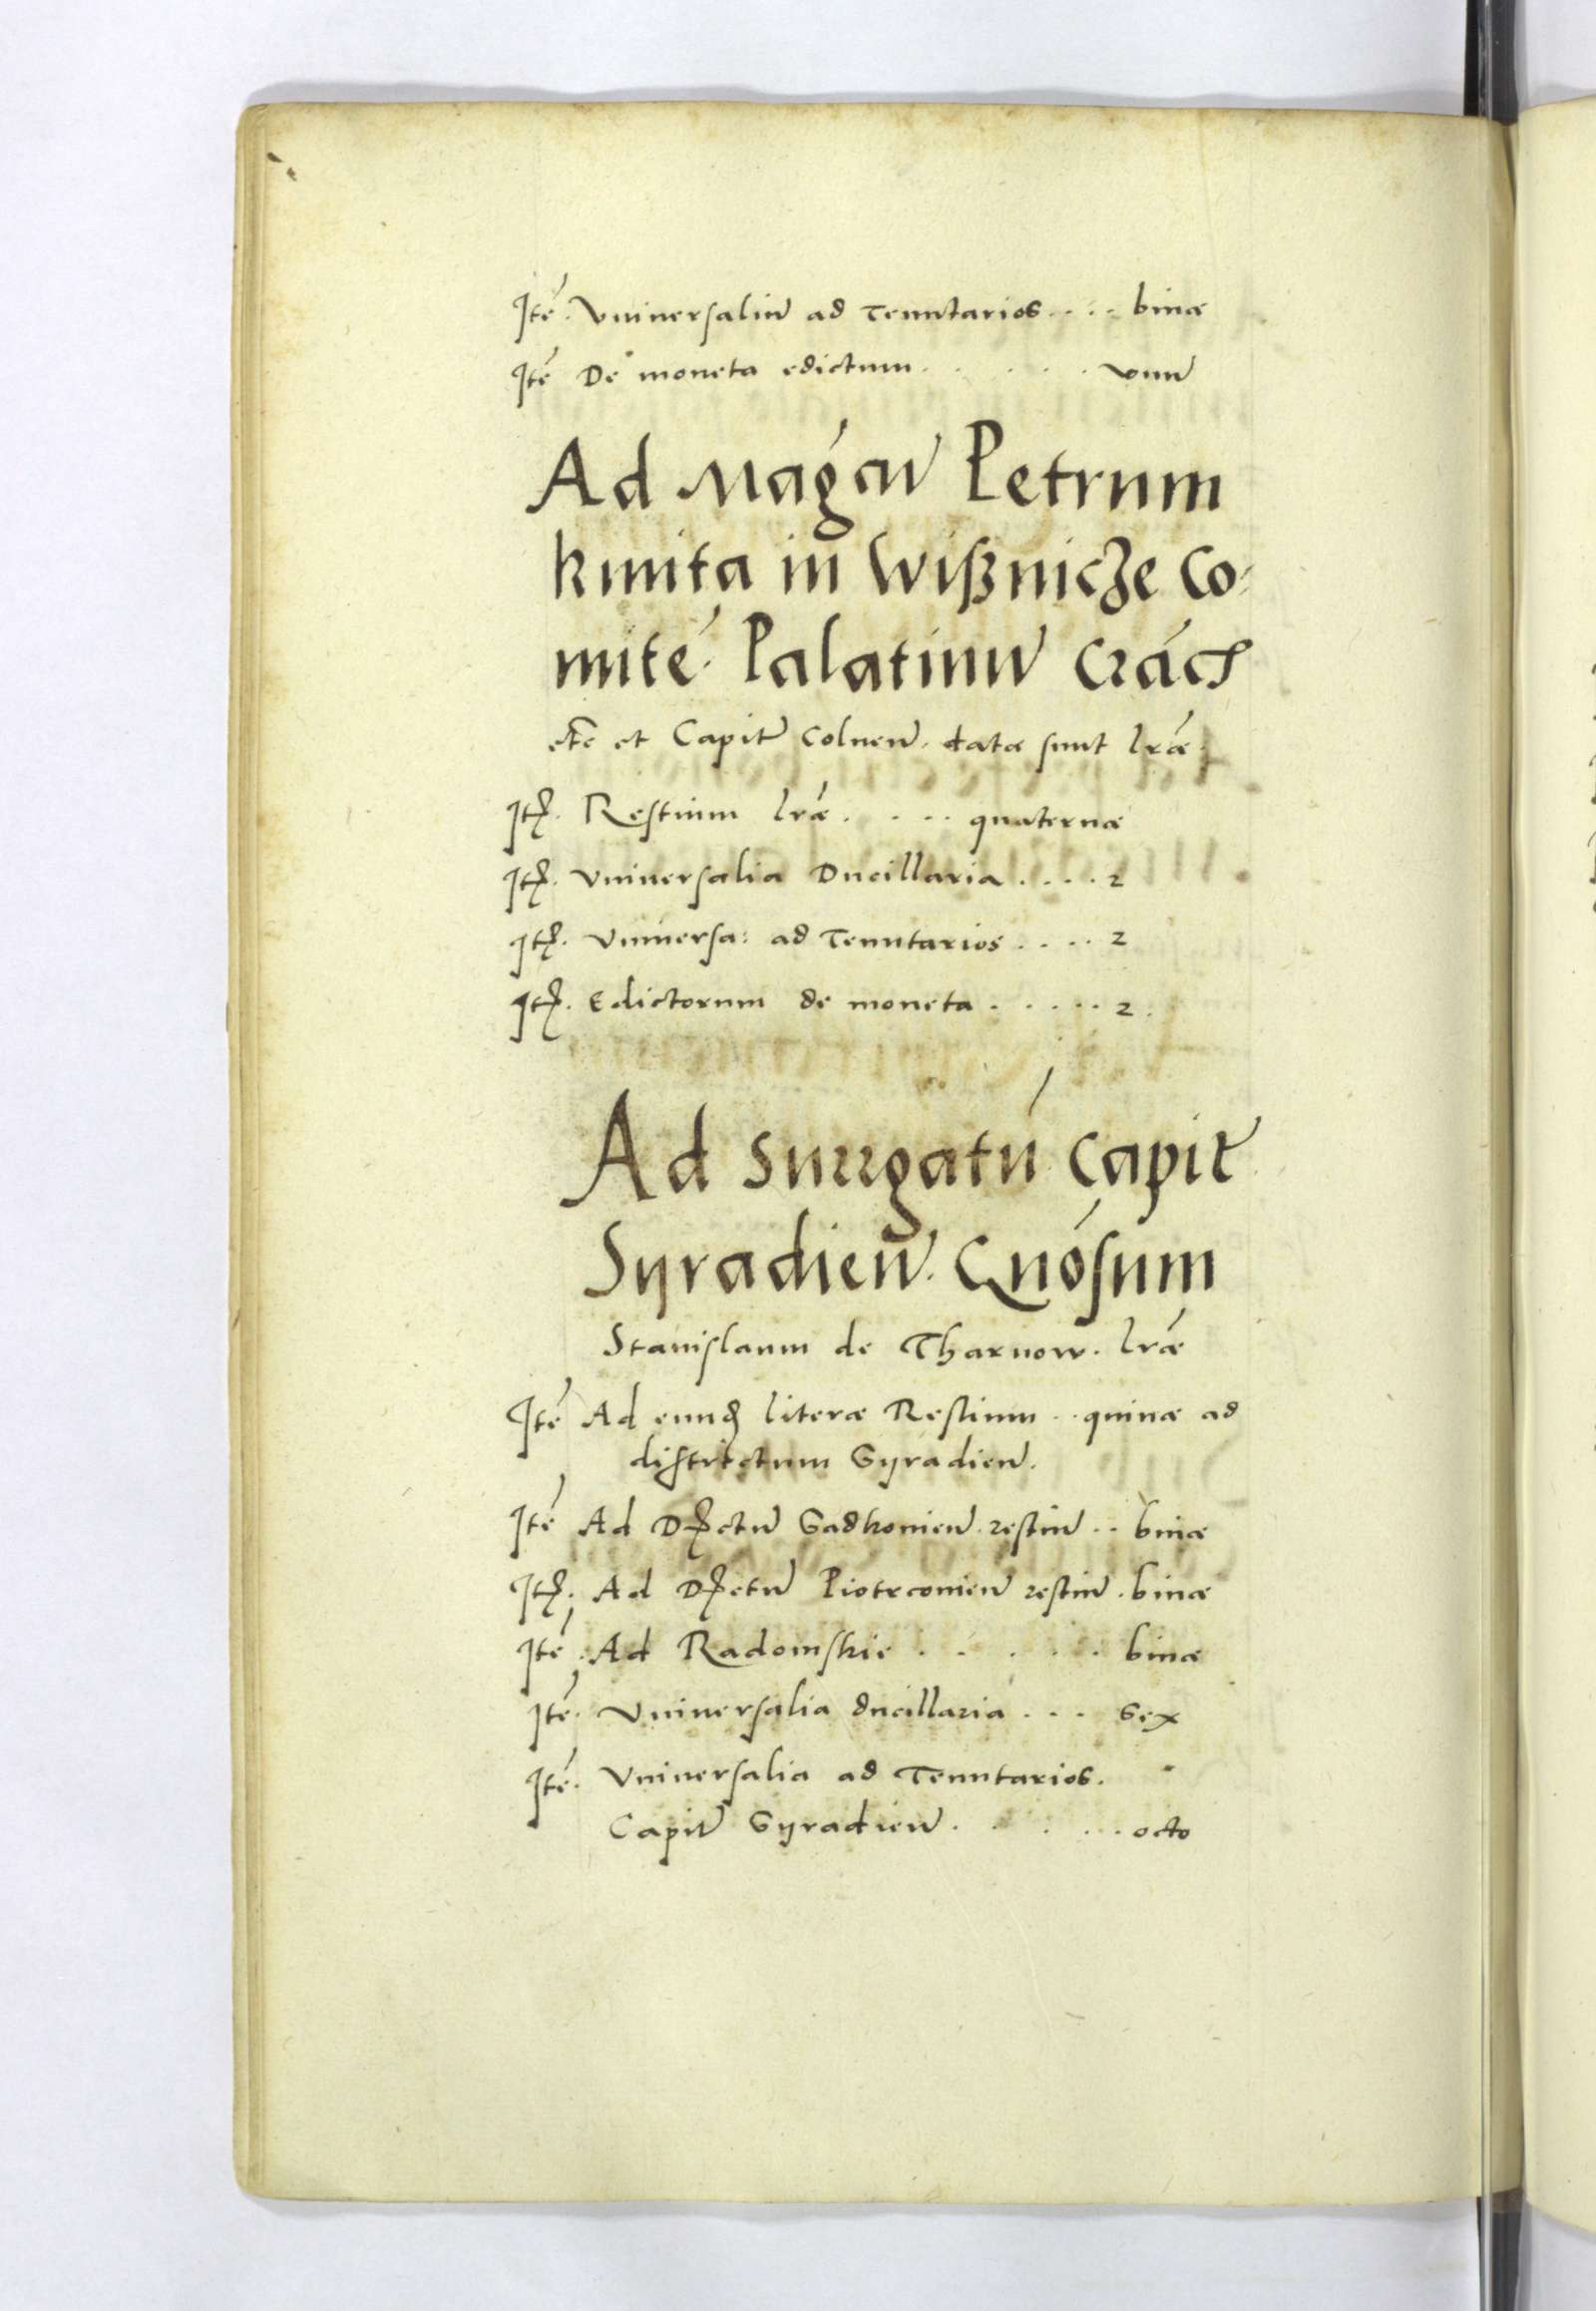 Itē. Vniuersaliū ad Tenutarios .... binæ
Itē De moneta edictum ..... vnū
Ad Magcū Petrum
kmita in Wißnicze Co:
mitē Palatinū Crac̄
etc̄ et Capit̄ Colnen̄. datæ sunt lræ.
Itē. Restium lræ .... quaternæ
Itē. Vniuersalia Ducillaria .... 2
Itē. Vniuersa: ad Tenutarios .... 2
Itē. Edictorum de moneta ..... 2.
Ad Surrgatū Capit̄
Syradien̄. Gnósum
Stanislaum de Tharnow. lræ
Itē Ad eund̄ literæ Restium .. quinæ ad
districtum Syradien̄.
Itē Ad Dr̄ctū Sadkonien̄ restiū .. binæ
Itē. Ad Dr̄ctū Piotrconien̄ restiū . binæ
Itē. Ad Radomskie ..... binæ
Itē. Vniuersalia ducillaria ... Sex
Itē. Vniuersalia ad Tenutarios.
Capit̄ Syradien̄ ..... octo